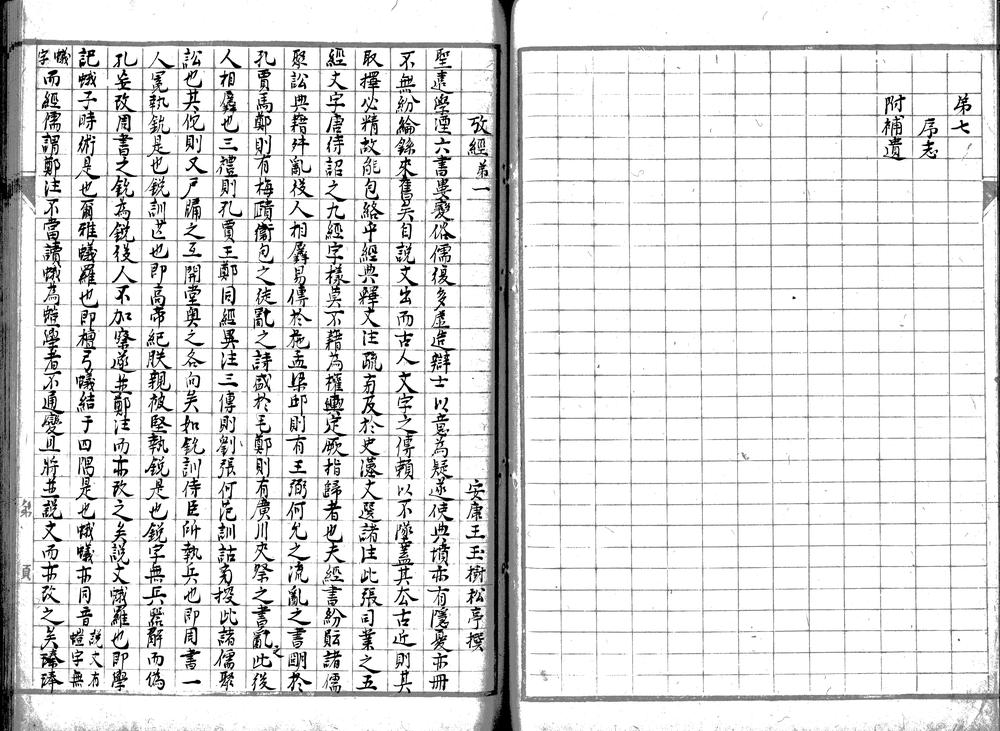 第七
序志
附補遺
攷經第一
安康王玉樹松亭撰
聖遠學湮六書婁變俗儒復多虛造辯士以意為疑遂使典墳亦有隱憂亦冊
不無紛綸餘來舊矣自說文出而古人文字之傳賴以不墜蓋其去古近則其
取擇必精故能包絡乎經典釋文注疏旁及於史漢文選諸注此張司業之五
經文字唐待詔之九經字樣莫不藉為權輿定厥指歸者也夫經書紛賾諸儒
聚訟典籍舛亂後人相麤易傳於施孟梁邱則有王弼何允之流亂之書明於
孔賈馬鄭則有梅賾衞包之徒亂之詩盛於毛鄭則有廣川夾漈之書亂之此後
人相麤也三禮則孔賈王鄭同經異注三傳則劉張何范訓詁旁授此諸儒聚
訟也其侻則又戶牖之互開堂奧之各向矣如銳訓侍臣所執兵也即周書一
人冕執銳是也銳訓芒也即高帝紀朕親被堅執銳是也銳字無兵器解而偽
孔妄改周書之銳為銳後人不加察遂並鄭注而亦改之矣說文蛾羅也即學
記蛾子時術是也爾雅蟻羅也即檀弓蟻結于四隅是也蛾蟻亦同音說文有螘字無
蟻字而經儒謂鄭注不當讀蛾為螘學者不通變且將並說文而亦改之矣琫琫
第 頁